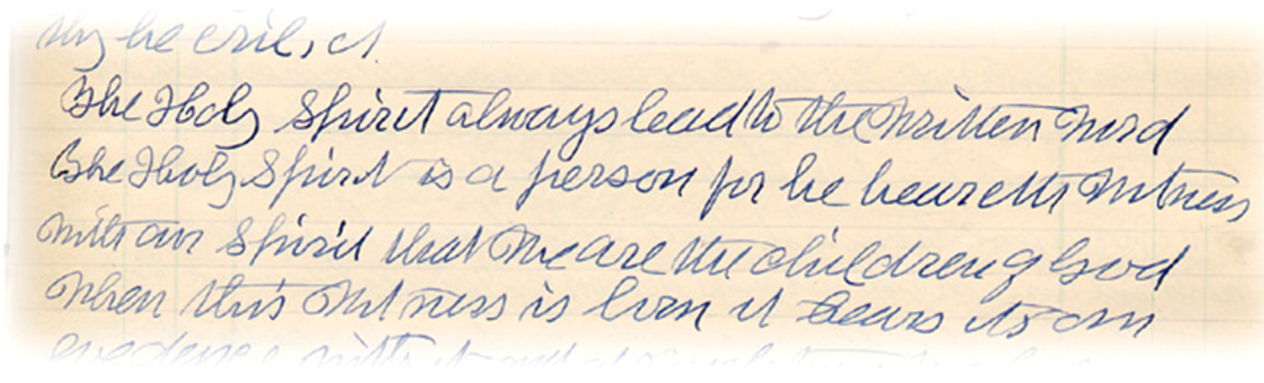 he evil,
The Holy Spirit always lead to the written word
The Holy Spirit is a person for he beareth witness
with our Spirit that we are the children of God
when this witness is born it bears its own
evidence with it and